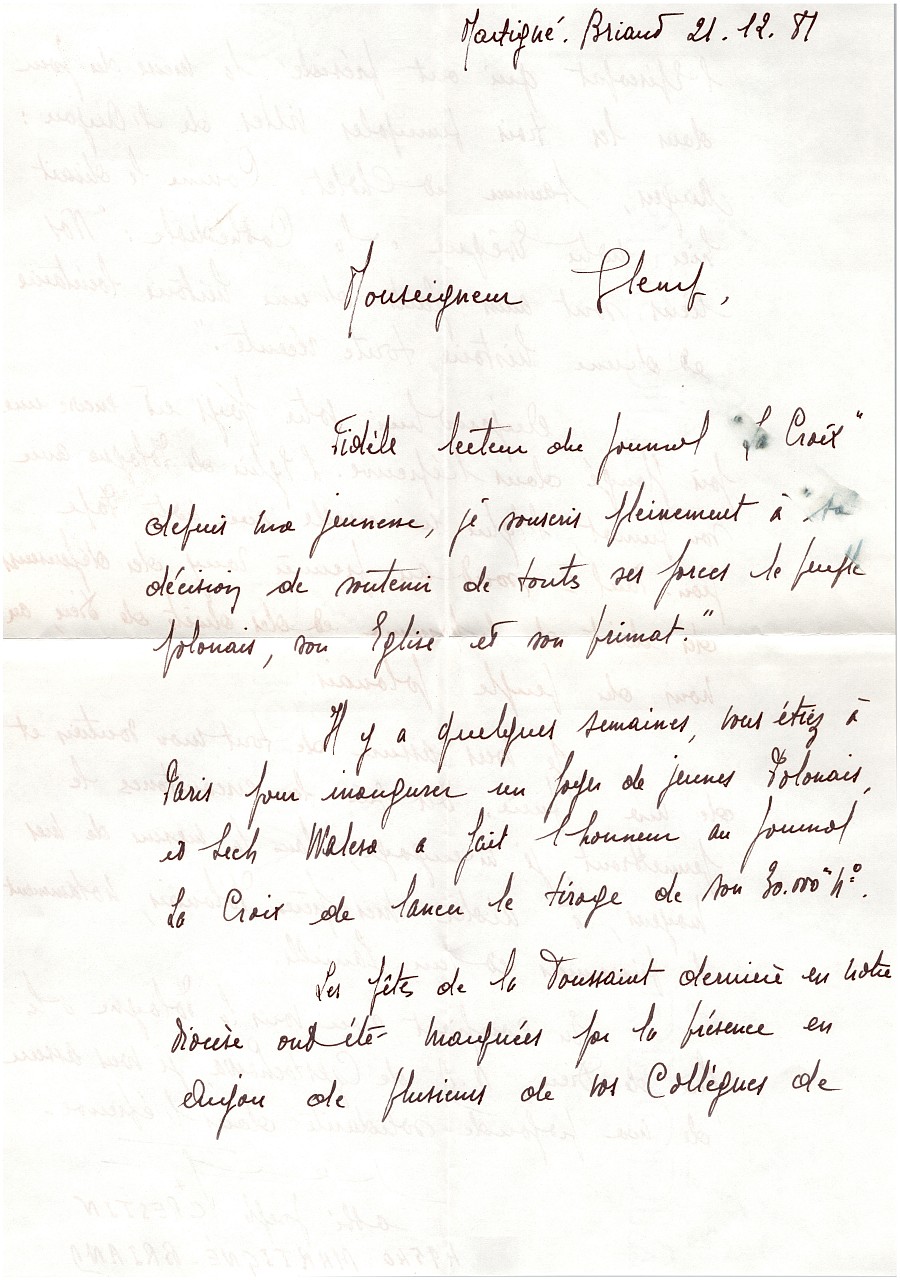 Martigné-Briand 21.12.81
Monseigneur Glemp,
Fidèle lecteur du journal "La Croix"
depuis ma jeunesse, je souscris pleinement à "sa
décision de soutenir de touts ses forces le peuple
polonais, son Eglise et son primat."
Il y a quelques semaines, vous étiez à
Paris pour inaugurer un foyer de jeunes Polonais,
et Lech Walesa a fait l'honneur au journal
La Croix de lancer le tirage de son 30.000e n°.
Les fêtes de la Toussaint dernière en notre
Diocèse ont été marquées par la présence en
Anjou de plusieurs de vos Collègues de